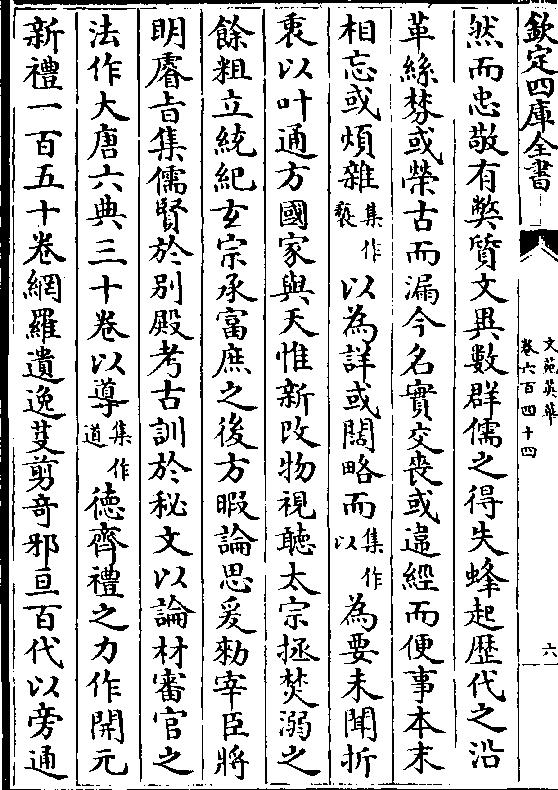 欽定四庫全書
文苑英華
卷六百四十四
六
然而忠敬有弊質文異數群儒之得失蜂起歴代之沿
革絲棼或榮古而漏今名實交喪或違經而便事本末
相忘或煩雜集作褻以為詳或闊略而集作以為要未聞折
衷以叶通方國家與天惟新改物視聽太宗拯焚溺之
餘粗立統紀玄宗承富庶之後方暇論思爰勑宰臣將
明睿㫖集儒賢於别殿考古訓於秘文以論材審官之
法作大唐六典三十卷以導集作道德齊禮之力作開元
新禮一百五十卷網羅遺逸芟剪竒邪亘百代以旁通